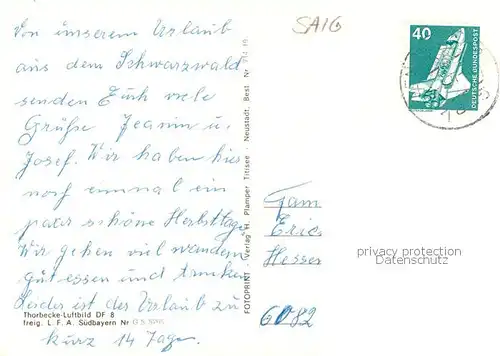 SAIG
Von unserem Urlaub
aus dem Schwarzwald
senden Euch viele
Grüße Jeanin u.
Josef. Wir haben hier
noch einmal ein
paar schöne Herbsttage
Wir gehen viel wandern
gut essen und trinken
Leider ist der Urlaub zu
kurz 14 Tage.
Thorbecke-Luftbild DF 8
freig. L. F. A. Südbayern Nr G 5
FOTOPRINT - Verlag H. Plamper Titisee - Neustadt. Best Nr
40
DEUTSCHE BUNDESPOST
Fam
Eric
Hesser
6082
privacy protection
Datenschutz